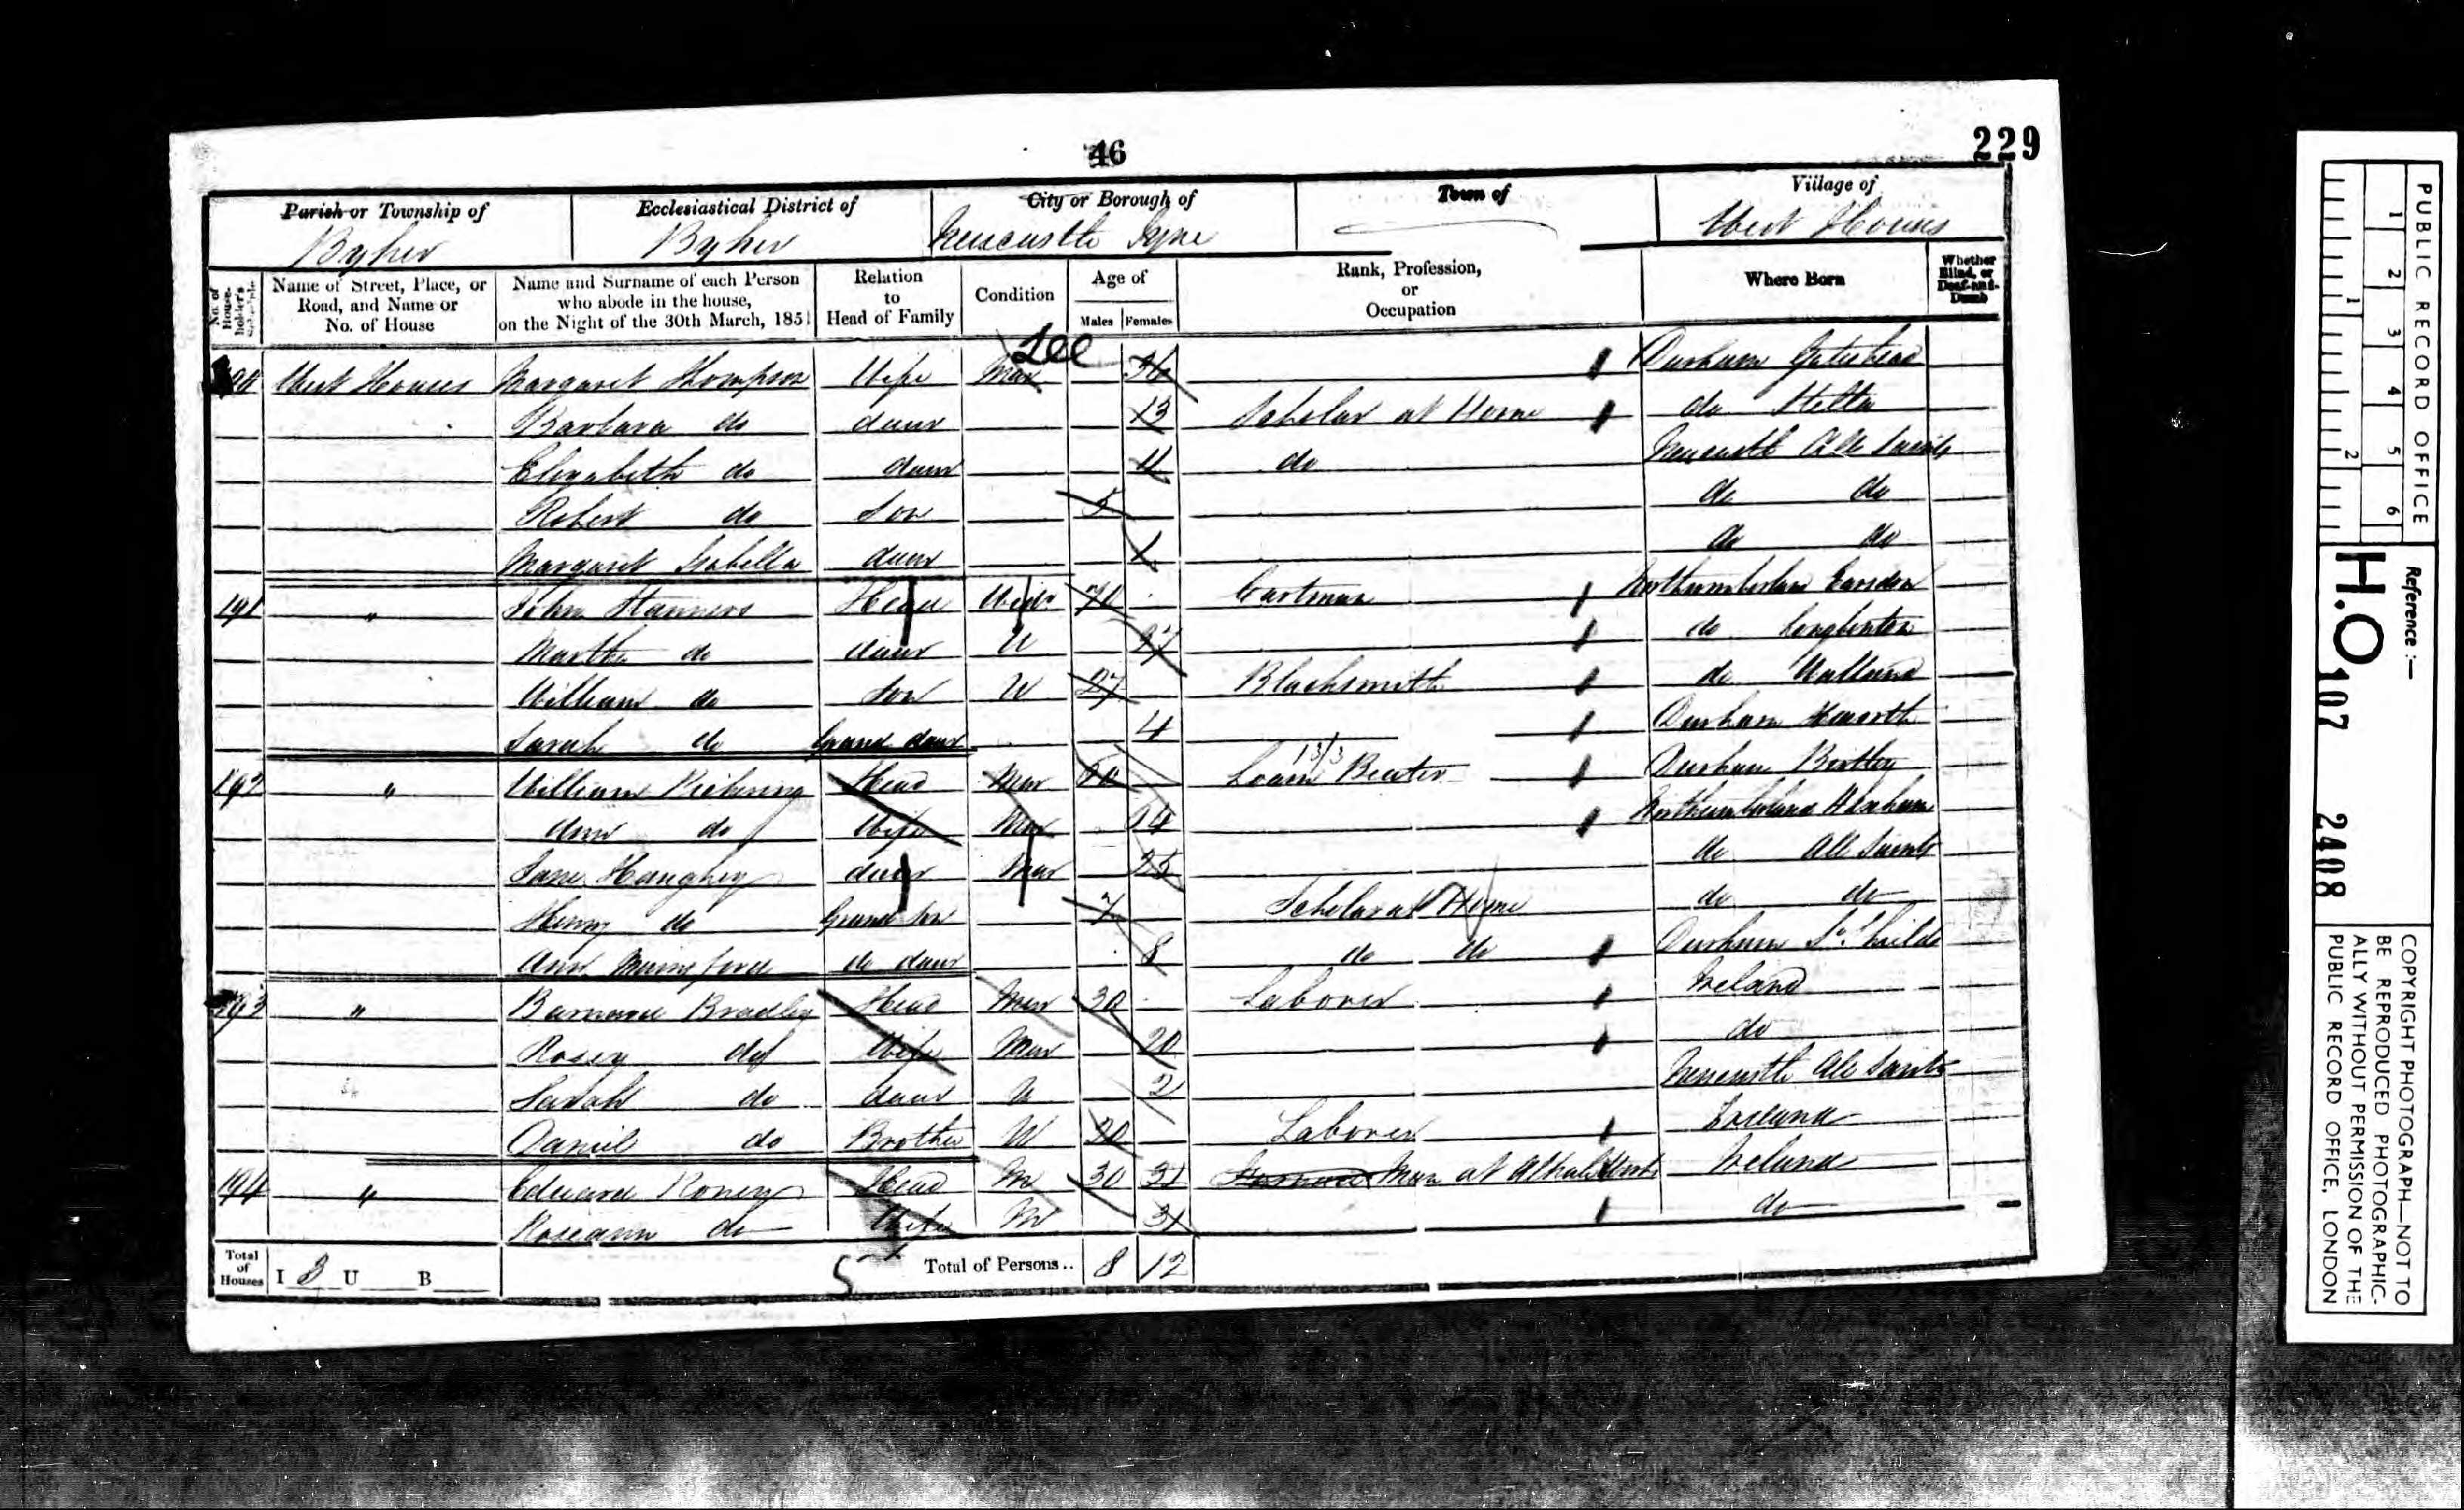 46
229
Parish or Township of
Ecclesiastical District of
City or Borough of
Town of
Village of
Byker
Byker
Newcastle Tyne
West Houses
No. of House-holder's Schedule
Name of Street, Place, or Road, and Name or No. of House
Name and Surname of each Person who abode in the house, on the Night of the 30th March, 1851
Relation to Head of Family
Condition
Age of
Males Females
Rank, Profession, or Occupation
Where Born
Whether Blind, or Deaf-and-Dumb
190 West Houses Margaret Thompson Wife Mar 36 Durham Gateshead
Barbara do daur 13 Scholar at Home do Stella
Elizabeth do daur 11 do Newcastle All Saints
Robert do Son 5 do do
Margaret Isabella daur 1 do do
191 " John Stanners Head Widr Cartman Northumberland Earsdon
Martha do daur U do Longbenton
William do Son U 27 Blacksmith do Wallsend
Sarah do Grand daur 4 Durham Heworth
192 " William Pickering Head Mar Loam Beater Durham Birtley
13/3
Ann do Wife Mar Northumberland Hexham
Jane Haughey daur Mar 25 do All Saints
Henry do Grand Son 7 Scholar at Home do do
Ann do daur 8 do do Durham So. Shields
193 " Bradley Head Mar 30 Laborer Ireland
Rosey do Wife Mar 20 do
Sarah do daur U 2 Newcastle All Saints
Daniel do Brother U 20 Laborer Ireland
194 " Edward Roney Head M 30 Man at Alkali Works Ireland
Roseann do Wife M 31 do
Total of Houses I 3 U B
5
Total of Persons.. 8 12
PUBLIC RECORD OFFICE
1 2 3 4 5 6
1 2
Reference :—
H.O 107 2408
COPYRIGHT PHOTOGRAPH—NOT TO
BE REPRODUCED PHOTOGRAPHIC-
ALLY WITHOUT PERMISSION OF THE
PUBLIC RECORD OFFICE, LONDON